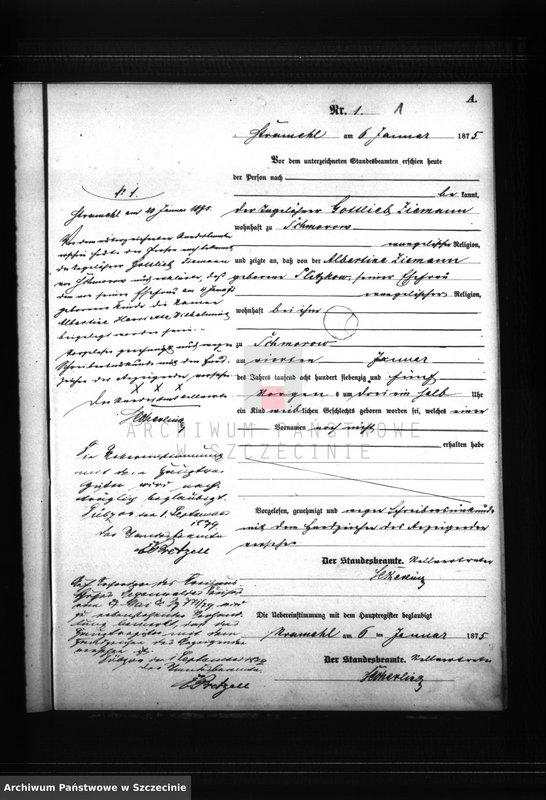 A.
Nr. 1. 1
Stramehl am 6 Januar 1875
Vor dem unterzeichneten Standesbeamten erschien heute
der Person nach
be kannt,
der Tagelöhner Gottlieb Ziemann
wohnhaft zu Schmorow
evangelischer Religion,
und zeigte an, daß von der Albertine Ziemann
geborene Plitzkow, seiner Ehefrau
evangelischer Religion,
wohnhaft bei ihm
zu Schmorow
am vierten Januar
des Jahres tausend acht hundert siebenzig und fünf
Morgens um drei ein halb Uhr
ein Kind weiblichen Geschlechts geboren worden sei, welches einen
Vornamen noch nicht
erhalten habe
Vorgelesen, genehmigt und wegen Schreibensunkunde
mit dem Handzeichen des Anzeigenden
versehen
Der Standesbeamte. Stellvertreter
Die Uebereinstimmung mit dem Hauptregister beglaubigt
Stramehl am 6 ten Januar 1875
Der Standesbeamte. Stellvertreter
№ 1.
Stramehl am 10 Januar 1875.
Vor dem unterzeichneten Standesbeamten
erschien heute, der Person nach bekannt,
der Tagelöhner Gottlieb Ziemann
aus Schmorow und erklärte, daß
dem von seiner Ehefrau am 4 Januar
geborenen Kinde die Namen
Albertine Henriette Wilhelmine
beigelegt worden seien.
Vorgelesen genehmigt und wegen
Schreibensunkunde mit dem Hand-
zeichen des Anzeigenden versehen
X X X
Der Standesbeamte
Die Uebereinstimmung
mit dem Hauptre-
gister wird nach-
träglich beglaubigt.
den 1. September
1879
Der Standesbeamte
Pretzell
des
mit dem
Handzeichen des Anzeigenden
versehen ist.
den 1 September 1879
Der Standesbeamte
Pretzell
ARCHIWUM PAŃSTWOWE
W SZCZECINIE
Archiwum Państwowe w Szczecinie